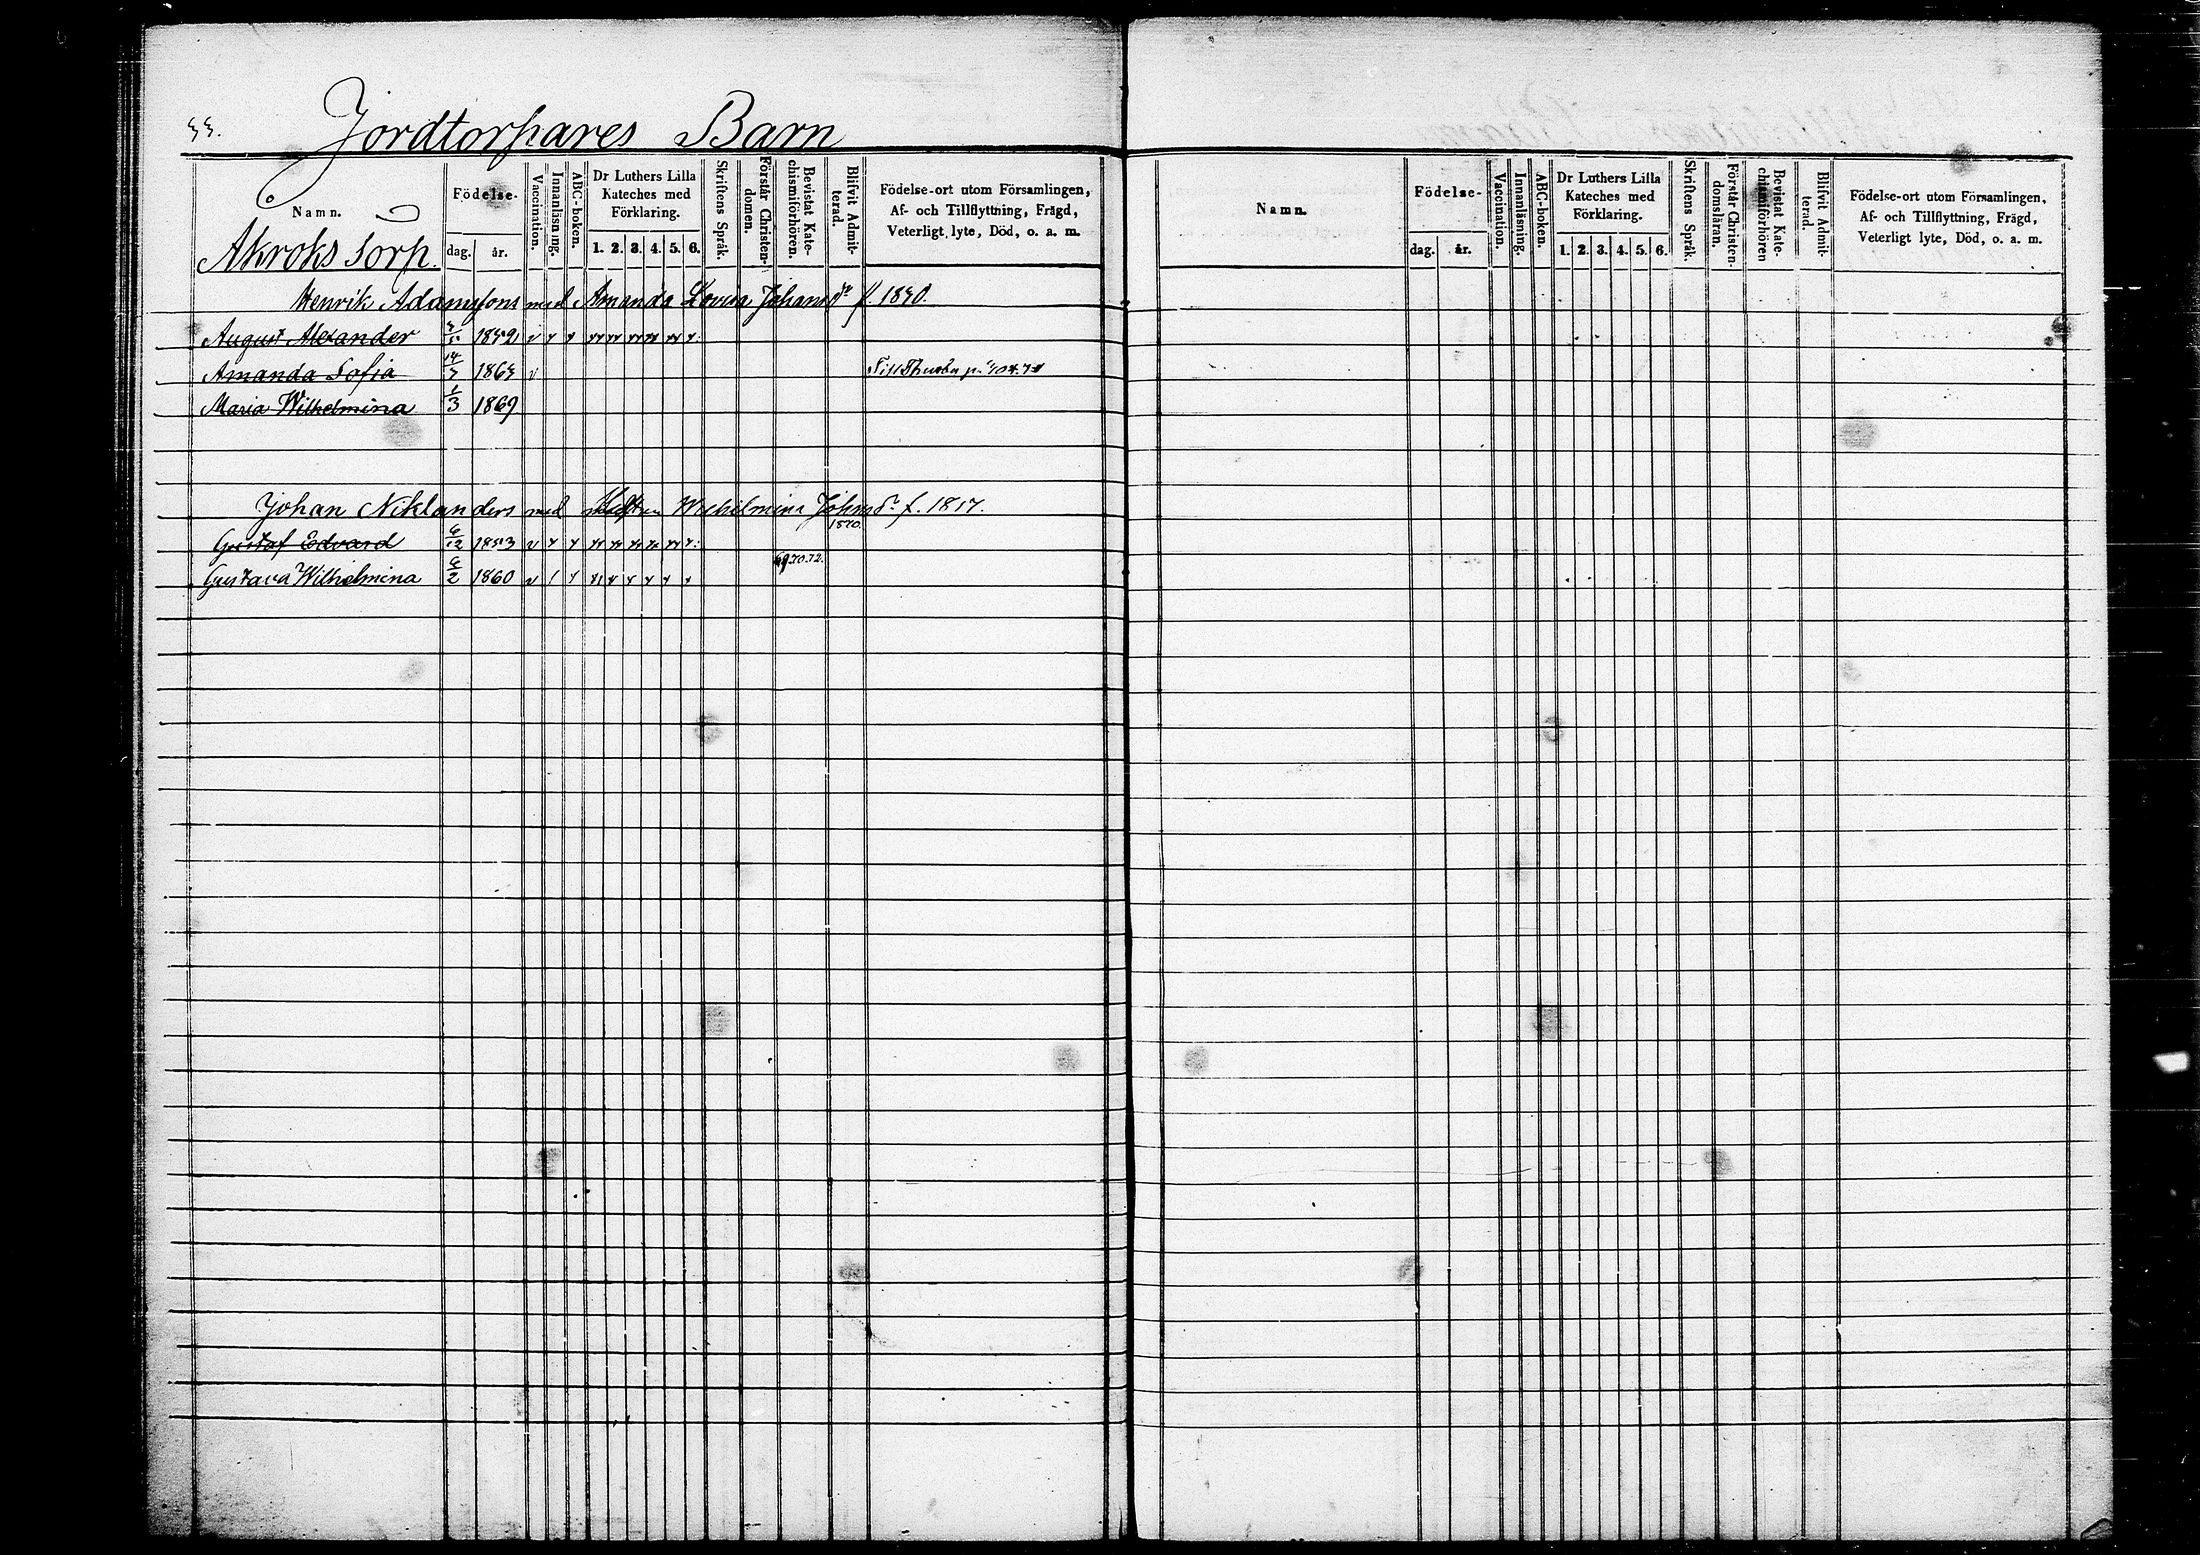 Jordtorpares Barn
Namn.
Födelse-
dag. år.
Vaccination.
Innanläsning.
ABC-boken.
Dr Luthers Lilla
Kateches med
Förklaring.
1. 2. 3. 4. 5. 6.
Skriftens Språk.
Förstår Christen-
domen.
Bevistat Kate-
chismiförhören.
Blifvit Admit-
terad.
Födelse-ort utom Församlingen,
Af- och Tillflyttning, Frägd,
Veterligt lyte, Död, o. a. m.
Akroks Torp.
Henrik Adamssons med Amanda Lovisa Johansdr f. 1840.
August Alexander 1859
Amanda Sofia 14 1863 Till
Maria Wilhelmina 1/3 1869
Johan Niklanders med Wilhelmina Johansdr f. 1817.
1870.
Gustaf Edvard 1853
69.70.72.
Gustava Wilhelmina 1860
Namn.
Födelse-
dag. år.
Vaccination.
Innanläsning.
ABC-boken.
Dr Luthers Lilla
Kateches med
Förklaring.
1. 2. 3. 4. 5. 6.
Skriftens Språk.
Förstår Christen-
domsläran.
Bevistat Kate-
chismiförhören
Blifvit Admit-
terad.
Födelse-ort utom Församlingen,
Af- och Tillflyttning, Frägd,
Veterligt lyte, Död, o. a. m.